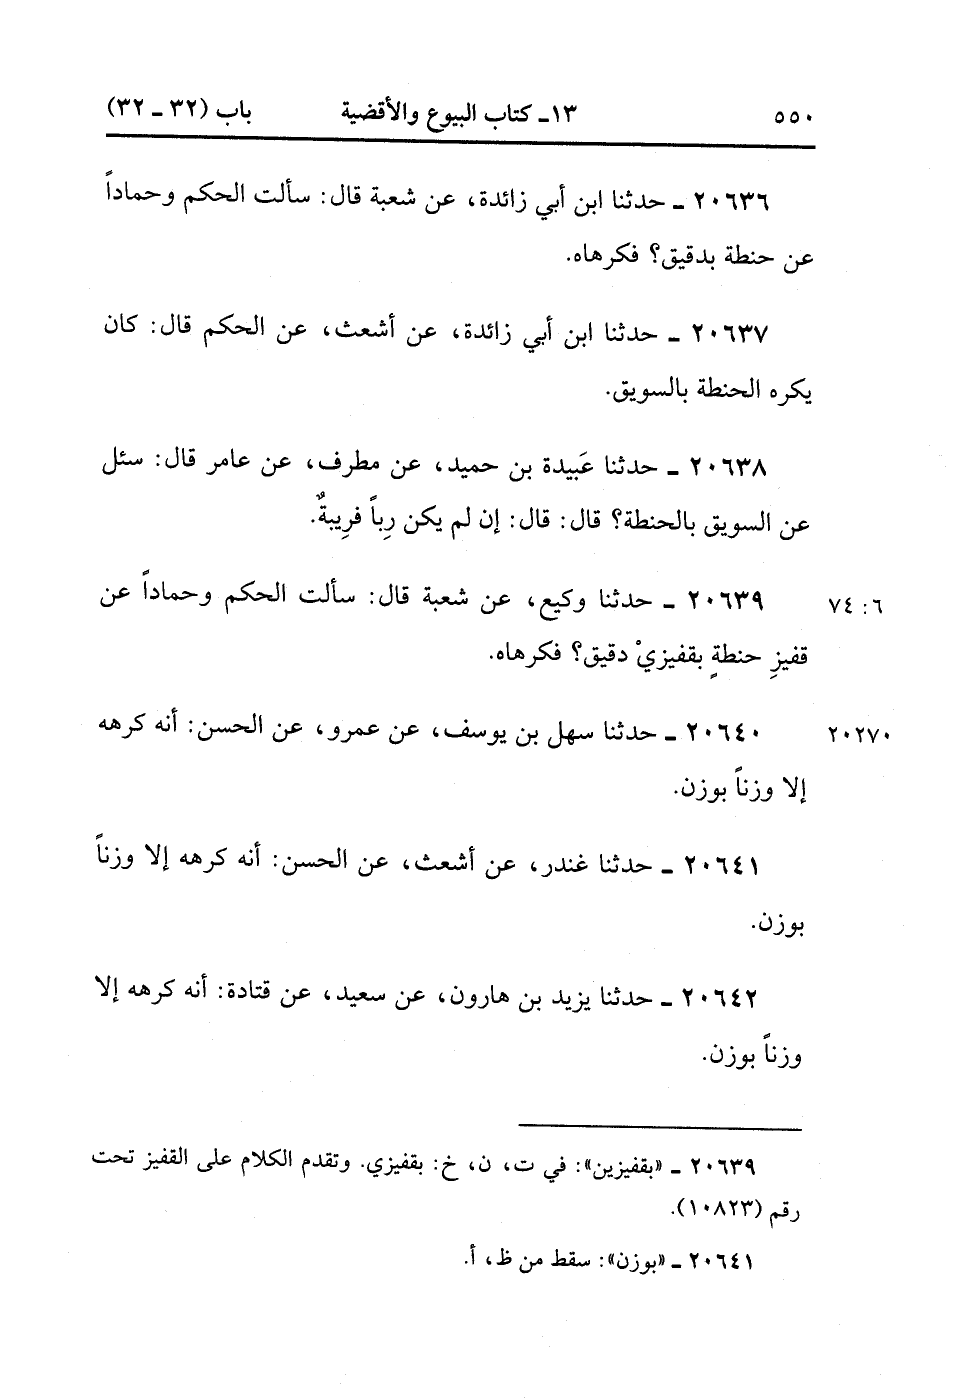 ٥٥٠ ١٣ـ كتاب البيوع والأقضية باب (٣٢ ـ ٣٢)
٢٠٦٣٦ ـ حدثنا ابن أبي زائدة، عن شعبة قال: سألت الحكم وحماداً
عن حنطة بدقيق؟ فكرهاه.
٢٠٦٣٧ ـ حدثنا ابن أبي زائدة، عن أشعث، عن الحكم قال: كان
يكره الحنطة بالسويق.
٢٠٦٣٨ ـ حدثنا عَبيدة بن حميد، عن مطرف، عن عامر قال: سئل
عن السويق بالحنطة؟ قال: قال: إن لم يكن رِباً فرِيبةٌ.
٦: ٧٤ ٢٠٦٣٩ ـ حدثنا وكيع، عن شعبة قال: سألت الحكم وحماداً عن
قفيزِ حنطةٍ بقفيزيْ دقيق؟ فكرهاه.
٢٠٢٧٠ ٢٠٦٤٠ ـ حدثنا سهل بن يوسف، عن عمرو، عن الحسن: أنه كرهه
إلا وزناً بوزن.
٢٠٦٤١ ـ حدثنا غندر، عن أشعث، عن الحسن: أنه كرهه إلا وزناً
بوزن.
٢٠٦٤٢ ـ حدثنا يزيد بن هارون، عن سعيد، عن قتادة: أنه كرهه إلا
وزناً بوزن.
٢٠٦٣٩ ـ «بقفيزين»: في ت، ن، خ: بقفيزي. وتقدم الكلام على القفيز تحت
رقم (١٠٨٢٣).
٢٠٦٤١ ـ «بوزن»: سقط من ظ، أ.